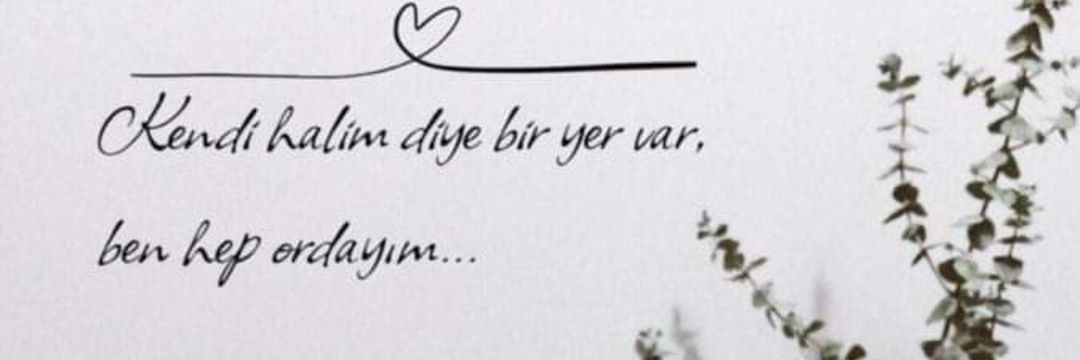 Kendi halim diye bir yer var,
ben hep ordayım...